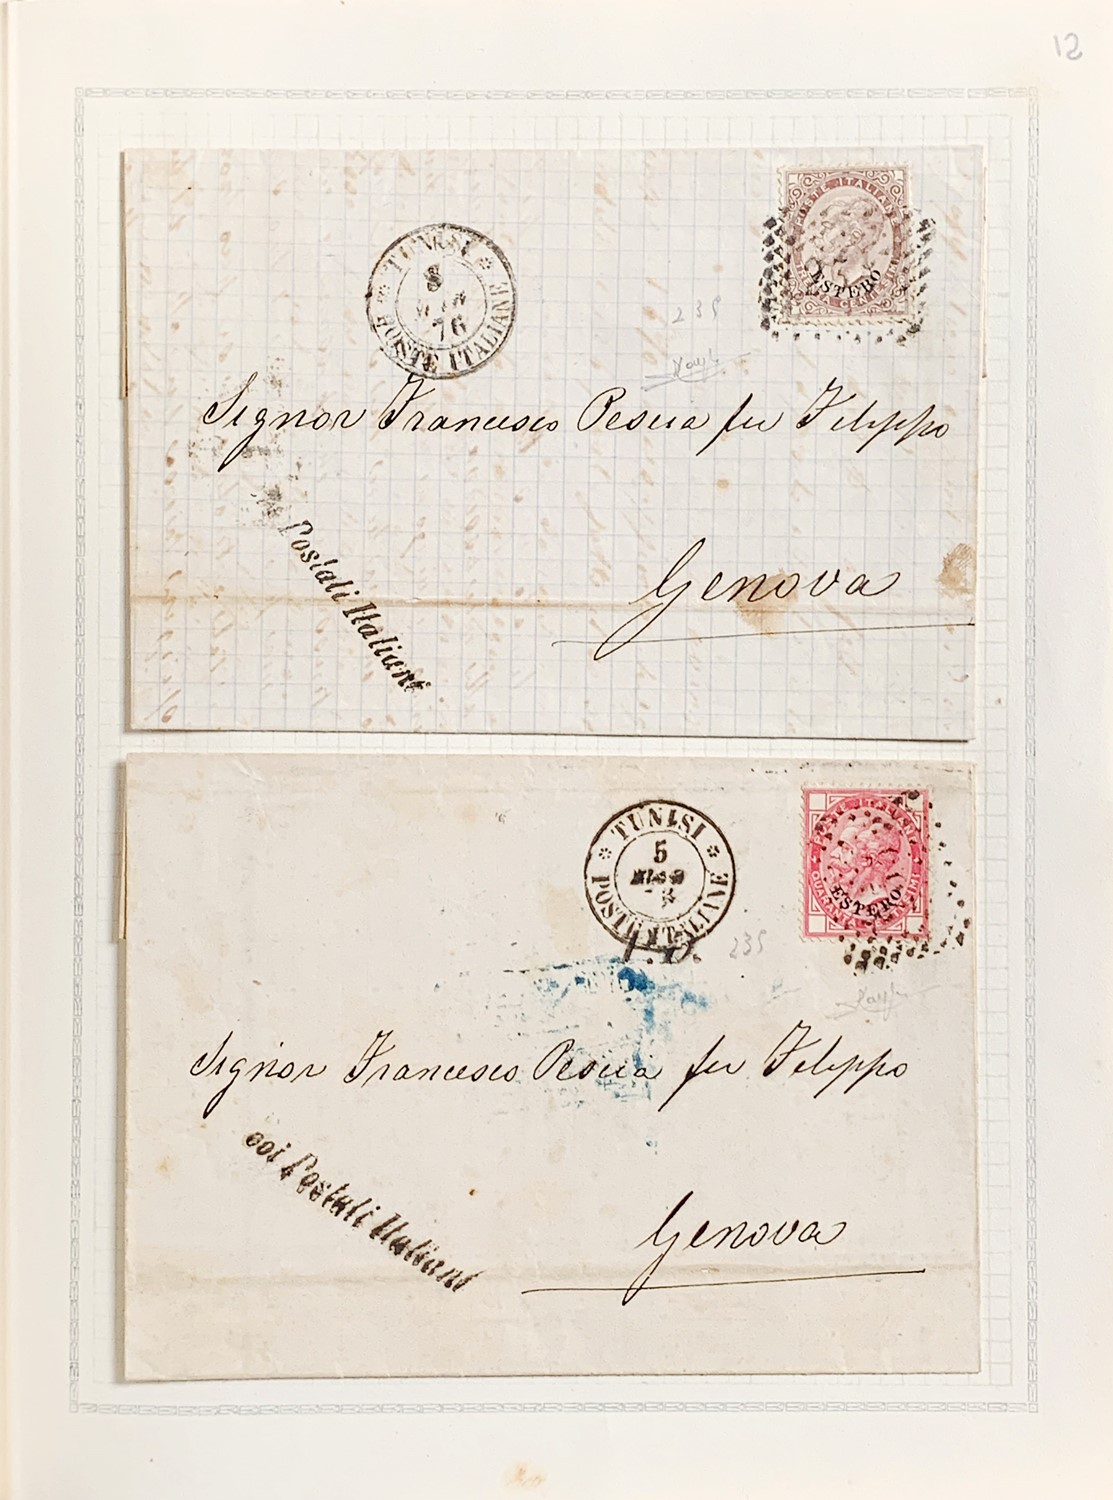 12
POSTE ITALIANE
ESTERO
TUNISI
8
76
POSTE ITALIANE
235
Signor Francesco Pescia fu Filippo
Postali Italiani
Genova
POSTE ITALIANE
ESTERO
TUNISI
5
POSTE ITALIANE
P.D.
235
Signor Francesco Pescia fu Filippo
coi Postali Italiani
Genova